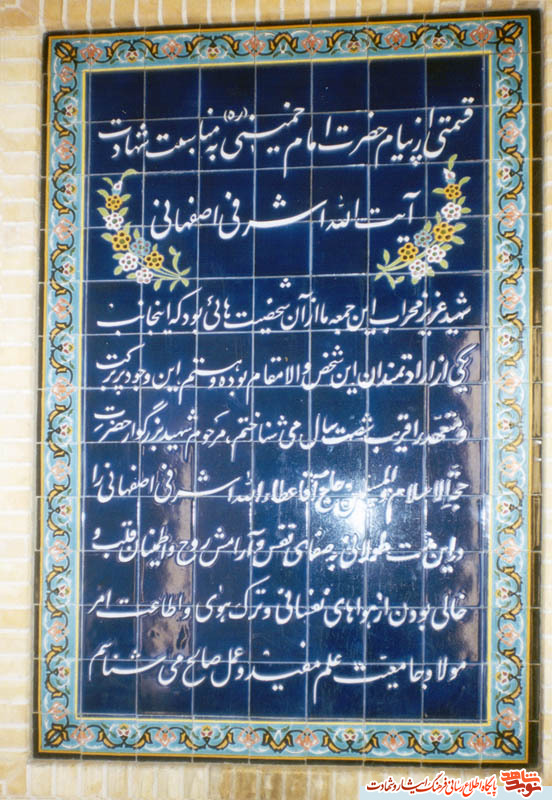 قسمتی از پیام حضرت امام خمینی (ره) به مناسبت شهادت
آیت الله اشرفی اصفهانی
شهید عزیز محراب این جمعه ما از آن شخصیت هائی بود که اینجانب
یکی از ارادتمندان این شخص والامقام بوده و هستم، این وجود پربرکت
و متعهد را قریب شصت سال می شناختم، مرحوم شهید بزرگوار حضرت
حجةالاسلام والمسلمین حاج آقا عطاءالله اشرفی اصفهانی را
در این مدت طولانی به صفای نفس و آرامش روح و اطمینان قلب و
خالی بودن از هواهای نفسانی و ترک هوی و اطاعت امر
مولا و جامعیت علم مفید و عمل صالح می شناسم
نوید شاهد
پایگاه اطلاع رسانی فرهنگ ایثار و شهادت